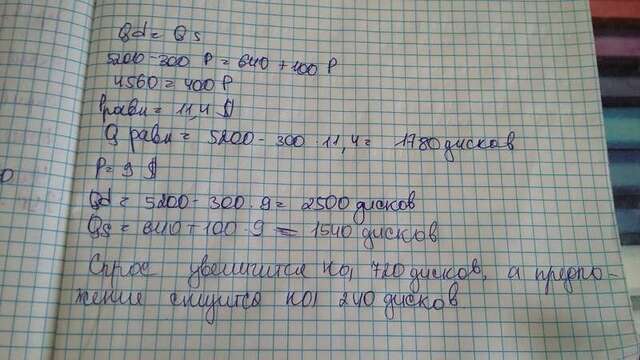 Qd = Qs
5200 - 300 P = 640 + 100 P
4560 = 400 P
Pравн = 11,4 $
Q равн = 5200 - 300 11,4 = 1780 дисков
P = 9 $
Qd = 5200 - 300 · 9 = 2500 дисков
Qs = 640 + 100 · 9 = 1540 дисков
Спрос увеличится на 720 дисков, а предло-
жение снизится на 240 дисков